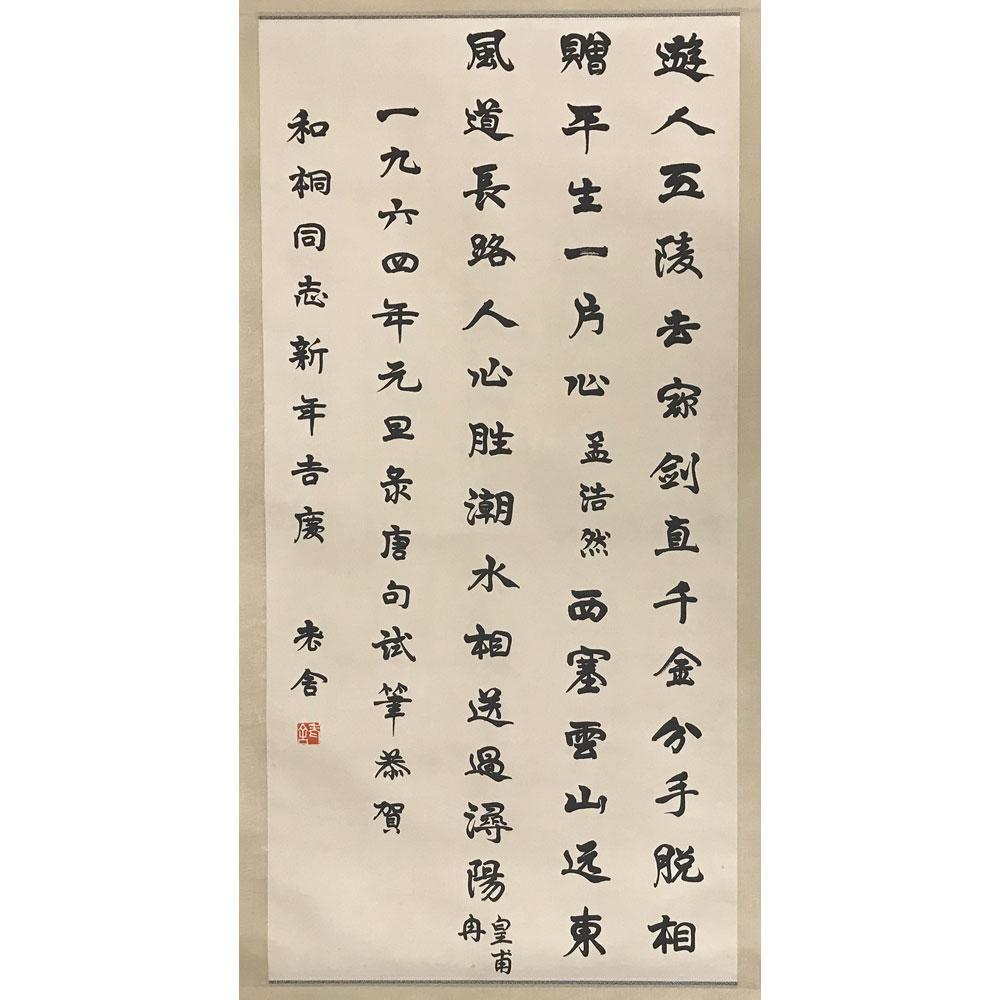 遊人五陵去寶剑直千金分手脱相
贈平生一片心孟浩然西塞雲山远東
風道長路人心胜潮水相送過潯陽皇甫冉
一九六四年元旦录唐句試筆恭賀
和桐同志新年吉慶 老舍
老舍